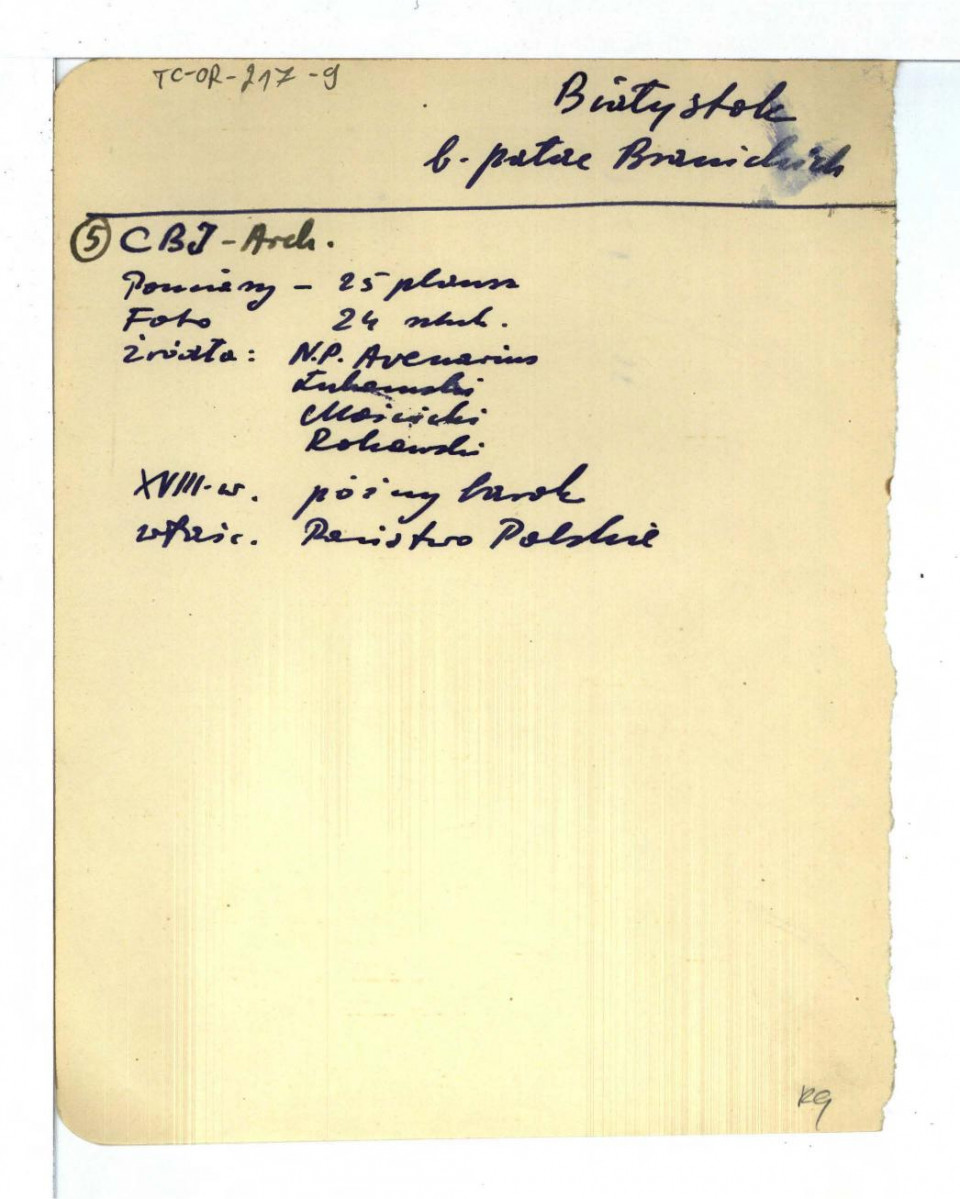 TC-OR-217-9
Białystok
b. pałac Branickich
5 CBI - Arch.
Pomiary - 25 plansz
Foto 24 sztuk.
źródła: N.P. Avenarius
Łukomski
Mościcki
Rokowski
XVIII-w. późny barok
właśc. Państwo Polskie
RG